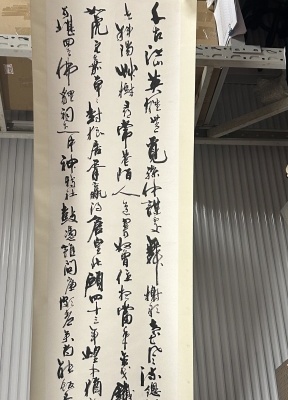 千古江山英雄無覓孫仲謀處舞榭歌臺風流總
去斜陽草樹尋常巷陌人道寄奴曾住想當年金戈鐵
虎元嘉草草封狼居胥贏得倉皇北顧四十三年望中猶
可堪回首佛貍祠下一片神鴉社鼓憑誰問廉頗老矣尚能飯